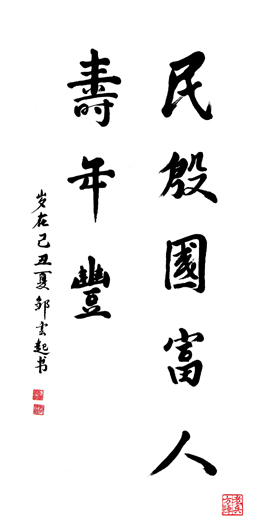 民殷國富人
壽年豐
岁在己丑夏邹云起书